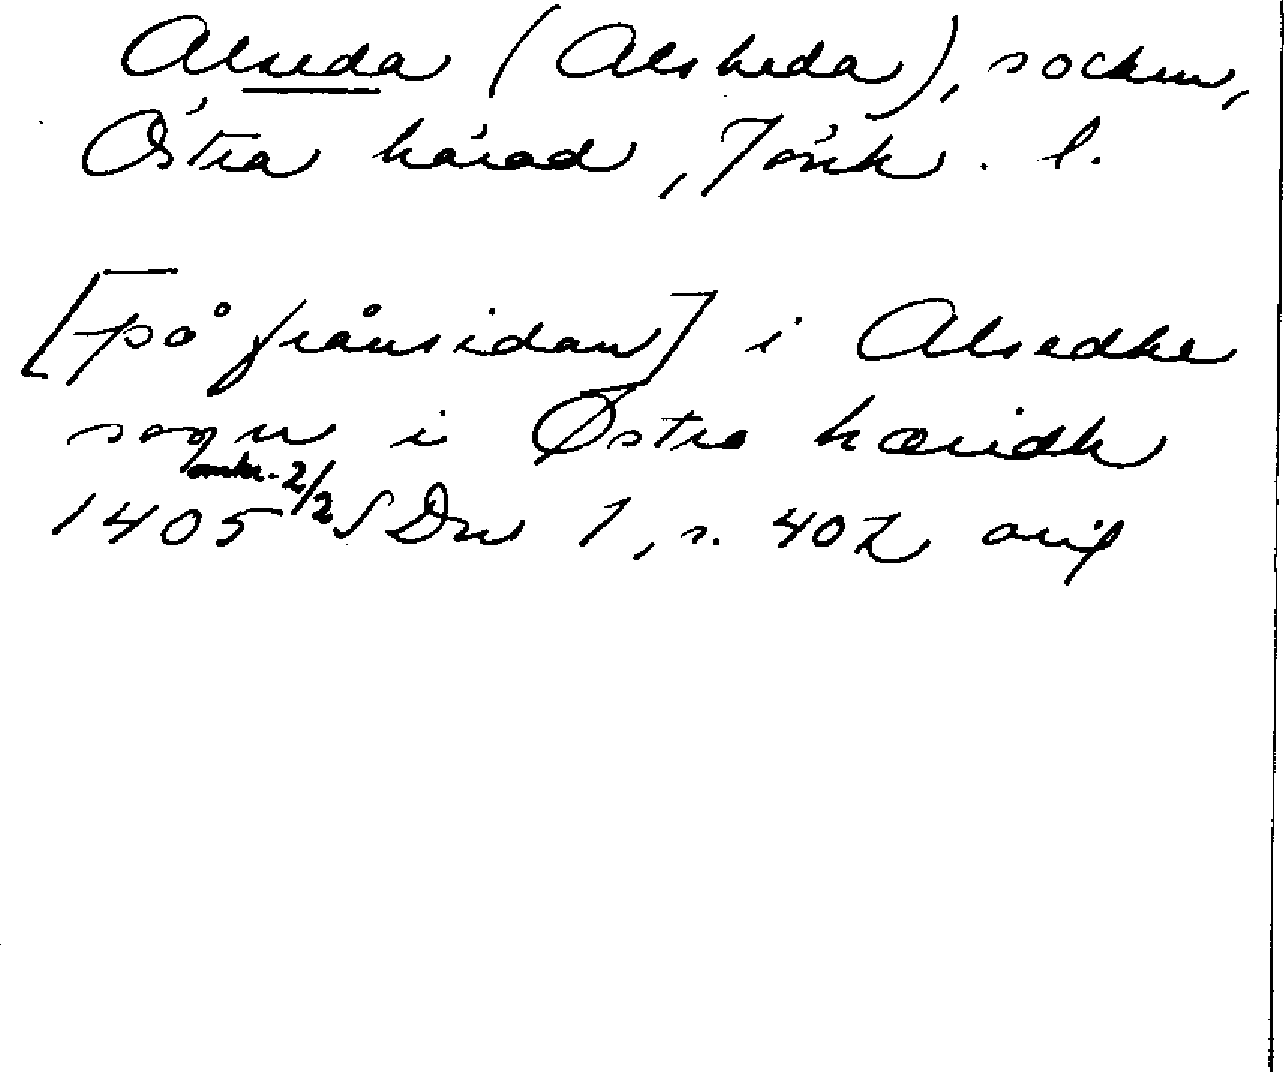 Alseda (Alsheda), socken,
Östra härad, Jönk. l.
[på frånsidan] i Alsedhe
sogn i Østre hæridh
omkr. 2/2
1405 SDns 1, s. 402 orig